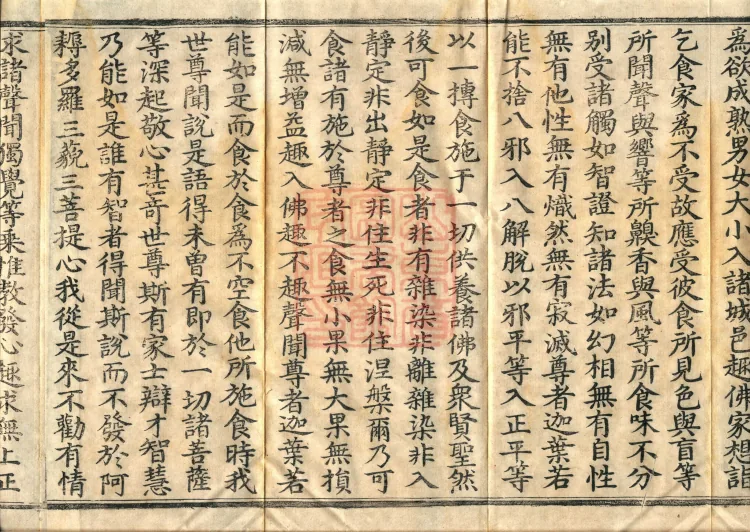 為欲成熟男女大小入諸城邑趣佛家想詣
乞食家為不受故應受彼食所見色與盲等
所聞聲與響等所齅香與風等所食味不分
別受諸觸如智證知諸法如幻相無有自性
無有他性無有熾然無有寂滅尊者迦葉若
能不捨八邪入八解脫以邪平等入正平等
以一摶食施于一切供養諸佛及衆賢聖然
後可食如是食者非有雜染非離雜染非入
靜定非出靜定非住生死非住涅槃爾乃可
食諸有施於尊者之食無小果無大果無損
減無增益趣入佛趣不趣聲聞尊者迦葉若
能如是而食於食為不空食他所施食時我
世尊聞說是語得未曾有即於一切諸菩薩
等深起敬心甚奇世尊斯有家士辯才智慧
乃能如是誰有智者得聞斯說而不發於阿
耨多羅三藐三菩提心我從是來不勸有情
求諸聲聞獨覺等乘惟教發心趣求無上正